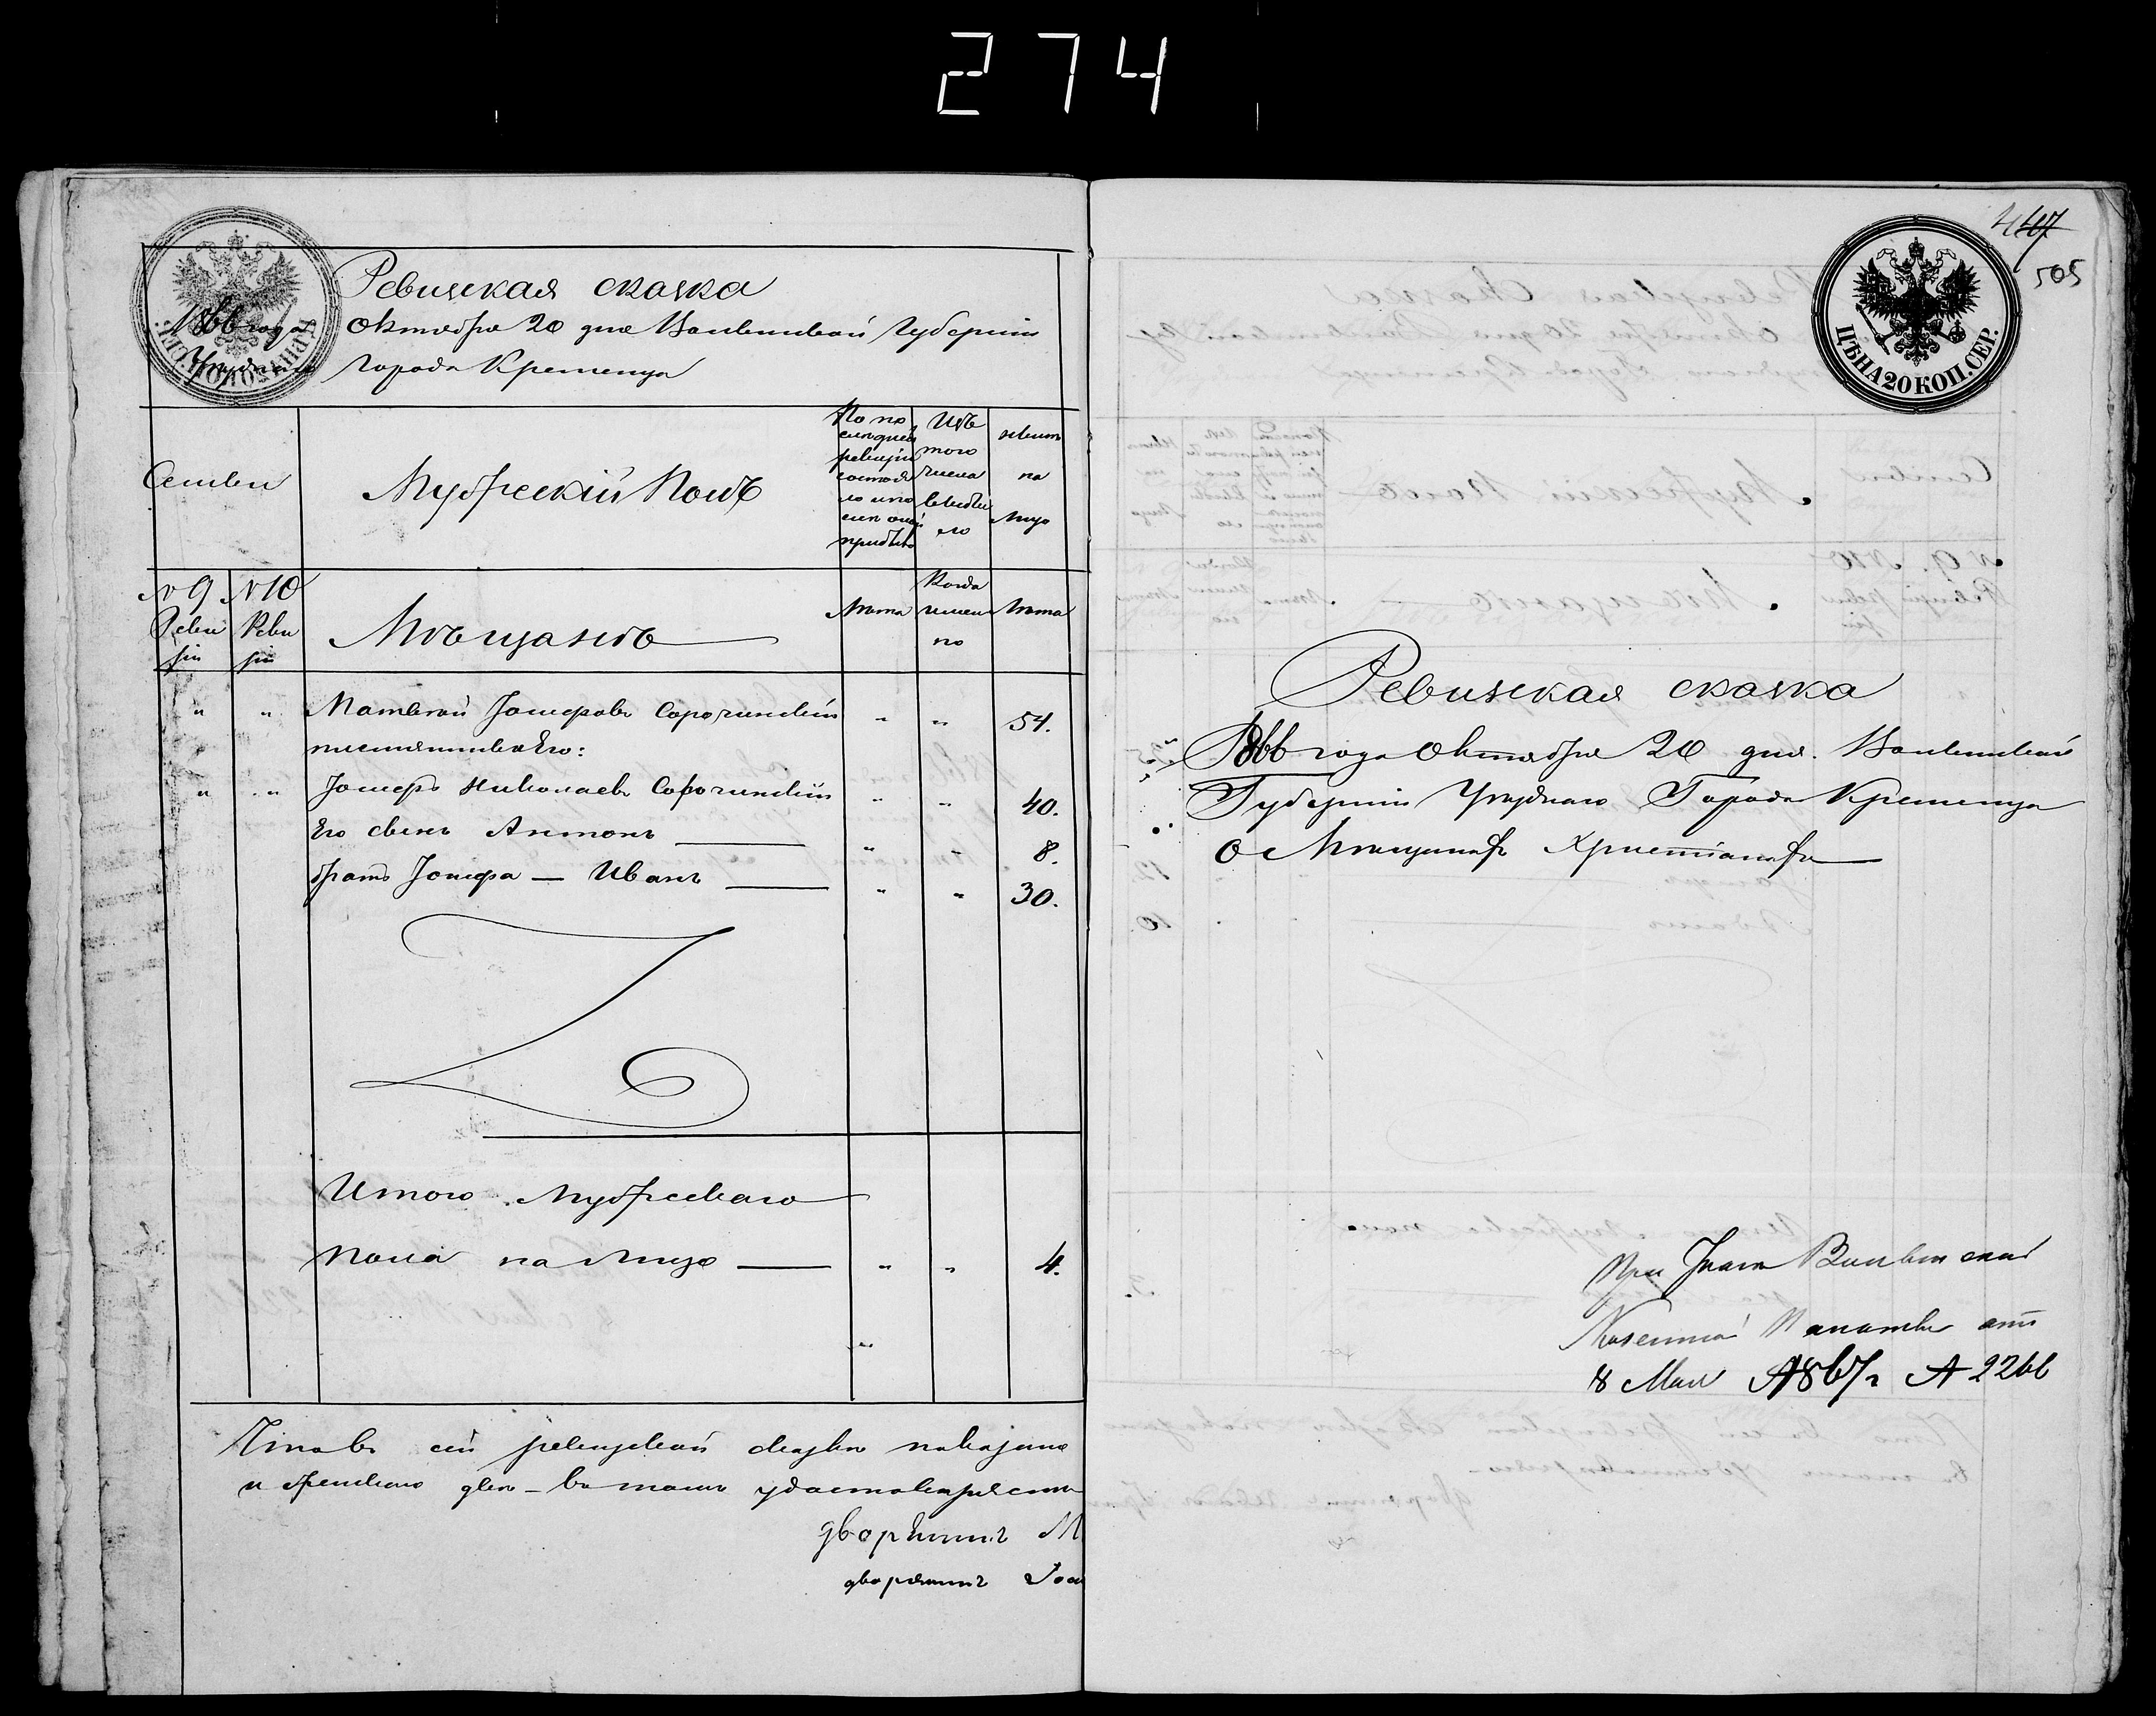 274
Ревизская сказка
1866 года Октября 20 дня Волынской Губерніи
Уѣзднаго Города Кременца
Семьи
Мужескій Полъ
По по
слѣдней
ревизіи
состоя
ло и по
слѣ оной
прибыло
Изъ
того
числа
выбы
ло
Нынѣ
на
Лицо
№ 9
Реви
зіи
№ 10
Реви
зіи
Мѣщанъ
Лѣта
Когда
имен
но
Лѣта
" " Матвѣй Іосифовъ Сорочинскій " " 54.
племянники Его:
" " Іосифъ Николаевъ Сорочинскій " " 40.
Его сынъ Антонъ " " 8.
братъ Іосифа — Иванъ " " 30.
Итого Мужескаго
пола на Лицо " " 4.
Что въ сей ревизской сказкѣ показано
въ томъ удостовѣряемъ
дворянинъ М
дворянинъ Іо
447
505
ЦѢНА 20 КОП. СЕР.
Ревизская сказка
1866 года Октября 20 дня. Волынской
Губерніи Уѣзднаго Города Кременца
О Мѣщанахъ Христіанахъ
При Указѣ Волынской
Казенной Палаты отъ
8 Мая 1867 г 2266